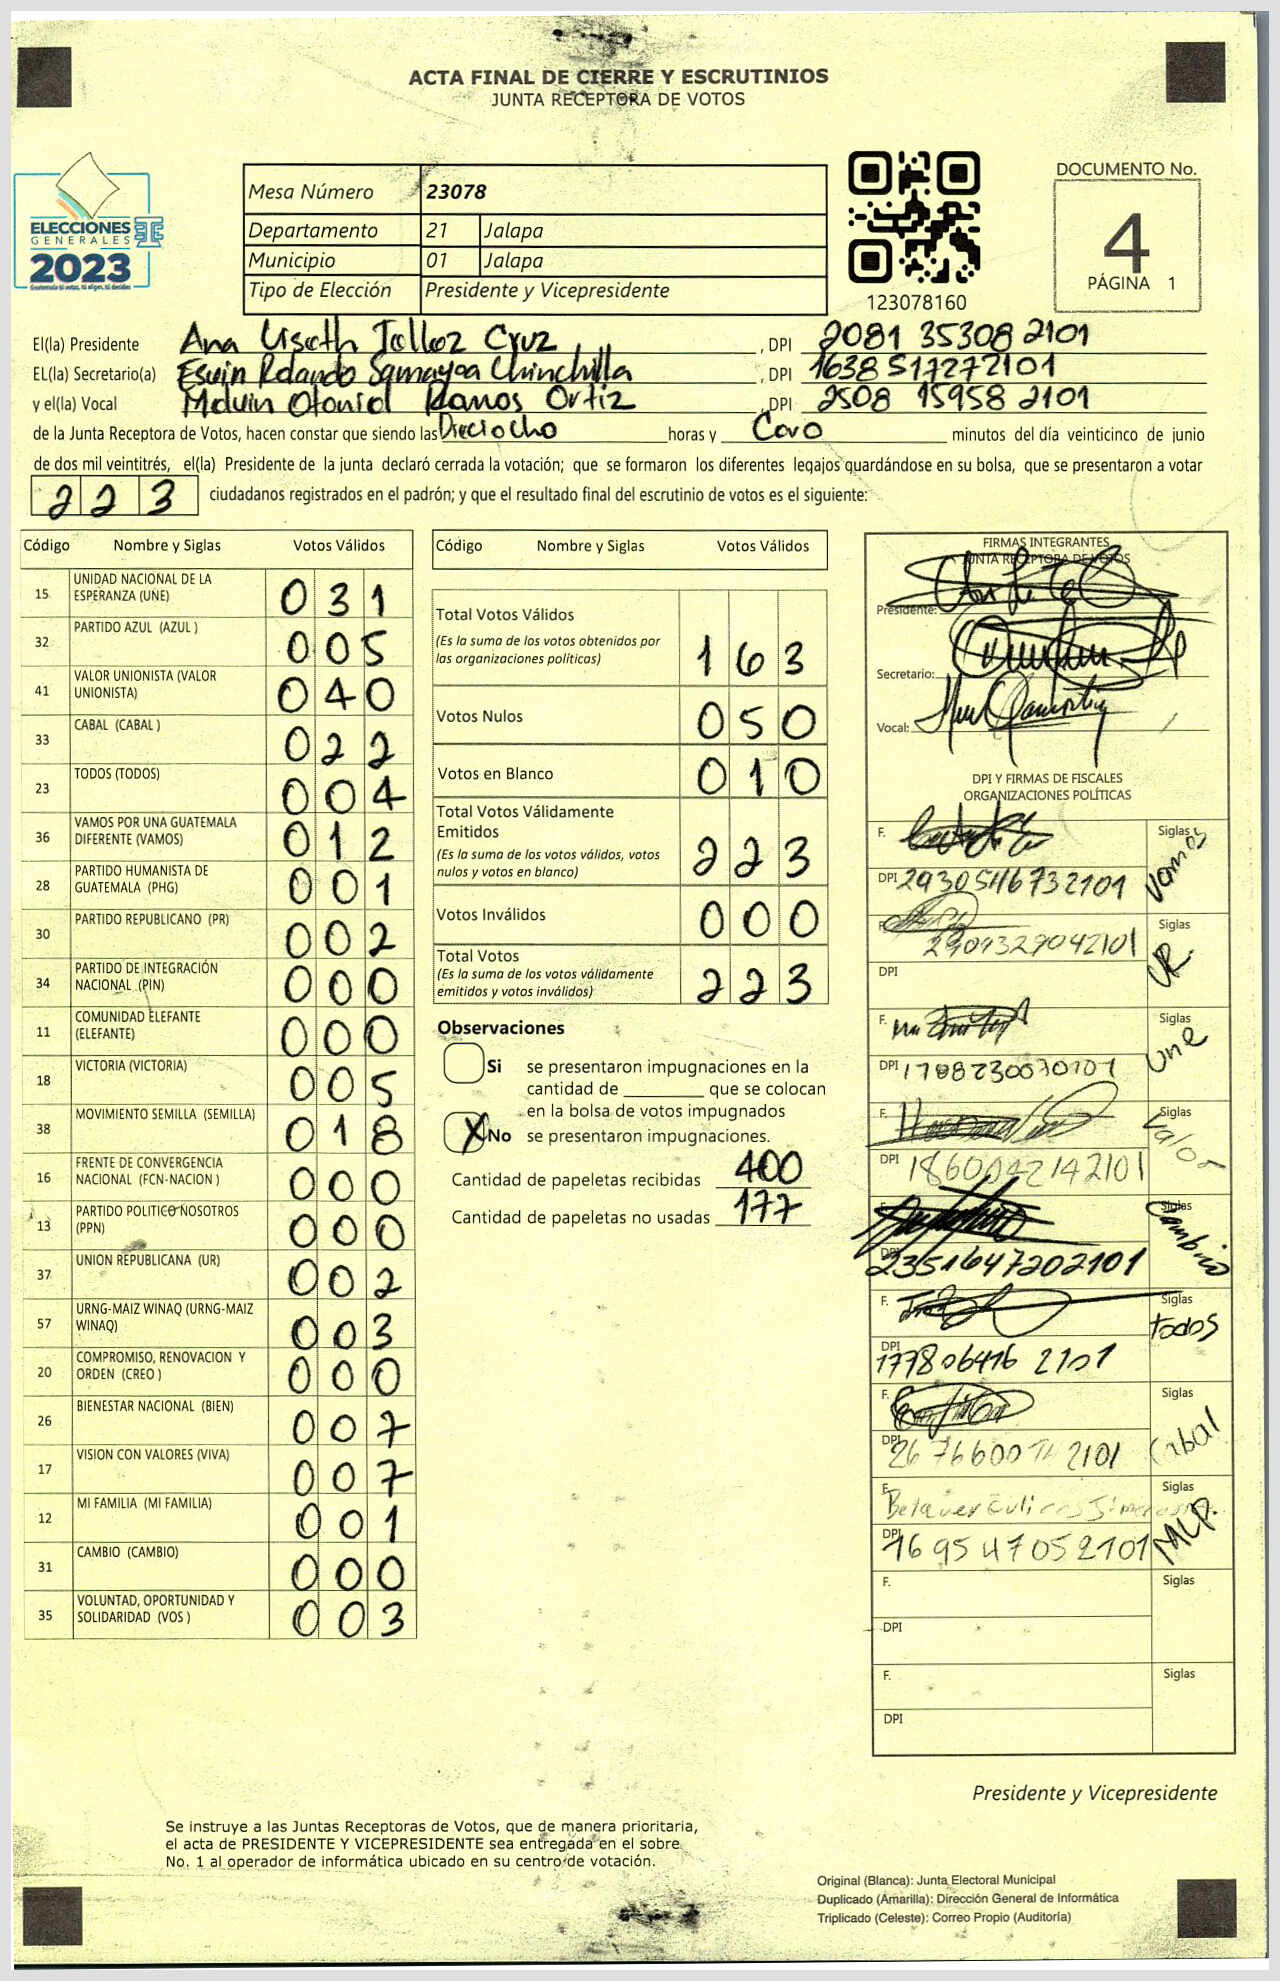 ACTA FINAL DE CIERRE Y ESCRUTINIOS
JUNTA RECEPTORA DE VOTOS
ELECCIONES
GENERALES
2023
Mesa Número 23078
Departamento 21 Jalapa
Municipio 01 Jalapa
Tipo de Elección Presidente y Vicepresidente
123078160
DOCUMENTO No.
4
PÁGINA 1
El(la) Presidente Ana Liseth Cruz , DPI 2081 35308 2101
EL(la) Secretario(a) Esvin Rolando Samayoa Chinchilla , DPI 1638 517272101
y el(la) Vocal Melvin Otoniel Ramos Ortiz , DPI 2508 15958 2101
de la Junta Receptora de Votos, hacen constar que siendo las Dieciocho horas y Cero minutos del día veinticinco de junio
de dos mil veintitrés, el(la) Presidente de la junta declaró cerrada la votación; que se formaron los diferentes legajos guardándose en su bolsa, que se presentaron a votar
223 ciudadanos registrados en el padrón; y que el resultado final del escrutinio de votos es el siguiente:
Código Nombre y Siglas Votos Válidos
15 UNIDAD NACIONAL DE LA ESPERANZA (UNE) 031
32 PARTIDO AZUL (AZUL ) 005
41 VALOR UNIONISTA (VALOR UNIONISTA) 040
33 CABAL (CABAL ) 022
23 TODOS (TODOS) 004
36 VAMOS POR UNA GUATEMALA DIFERENTE (VAMOS) 012
28 PARTIDO HUMANISTA DE GUATEMALA (PHG) 001
30 PARTIDO REPUBLICANO (PR) 002
34 PARTIDO DE INTEGRACIÓN NACIONAL (PIN) 000
11 COMUNIDAD ELEFANTE (ELEFANTE) 000
18 VICTORIA (VICTORIA) 005
38 MOVIMIENTO SEMILLA (SEMILLA) 018
16 FRENTE DE CONVERGENCIA NACIONAL (FCN-NACION ) 000
13 PARTIDO POLITICO NOSOTROS (PPN) 000
37 UNION REPUBLICANA (UR) 002
57 URNG-MAIZ WINAQ (URNG-MAIZ WINAQ) 003
20 COMPROMISO, RENOVACION Y ORDEN (CREO ) 000
26 BIENESTAR NACIONAL (BIEN) 007
17 VISION CON VALORES (VIVA) 007
12 MI FAMILIA (MI FAMILIA) 001
31 CAMBIO (CAMBIO) 000
35 VOLUNTAD, OPORTUNIDAD Y SOLIDARIDAD (VOS ) 003
Código Nombre y Siglas Votos Válidos
Total Votos Válidos 163
(Es la suma de los votos obtenidos por
las organizaciones políticas)
Votos Nulos 050
Votos en Blanco 010
Total Votos Válidamente
Emitidos 223
(Es la suma de los votos válidos, votos
nulos y votos en blanco)
Votos Inválidos 000
Total Votos 223
(Es la suma de los votos válidamente
emitidos y votos inválidos)
Observaciones
Si se presentaron impugnaciones en la
cantidad de ________ que se colocan
en la bolsa de votos impugnados
X No se presentaron impugnaciones.
Cantidad de papeletas recibidas 400
Cantidad de papeletas no usadas 177
FIRMAS INTEGRANTES
JUNTA RECEPTORA DE VOTOS
Presidente:
Secretario:
Vocal:
DPI Y FIRMAS DE FISCALES
ORGANIZACIONES POLÍTICAS
F. Siglas Vamos
DPI
F. Siglas UR.
DPI
F. Siglas Une
DPI
F. Siglas Valor
DPI 1860042142101
Siglas Cambio
DPI 2351647202101
F. Siglas todos
DPI 177806416 2101
F. Siglas Cabal
DPI
F. Siglas MLP.
DPI 169547052101
F. Siglas
DPI
F. Siglas
DPI
Presidente y Vicepresidente
Se instruye a las Juntas Receptoras de Votos, que de manera prioritaria,
el acta de PRESIDENTE Y VICEPRESIDENTE sea entregada en el sobre
No. 1 al operador de informática ubicado en su centro de votación.
Original (Blanca): Junta Electoral Municipal
Duplicado (Amarilla): Dirección General de Informática
Triplicado (Celeste): Correo Propio (Auditoría)